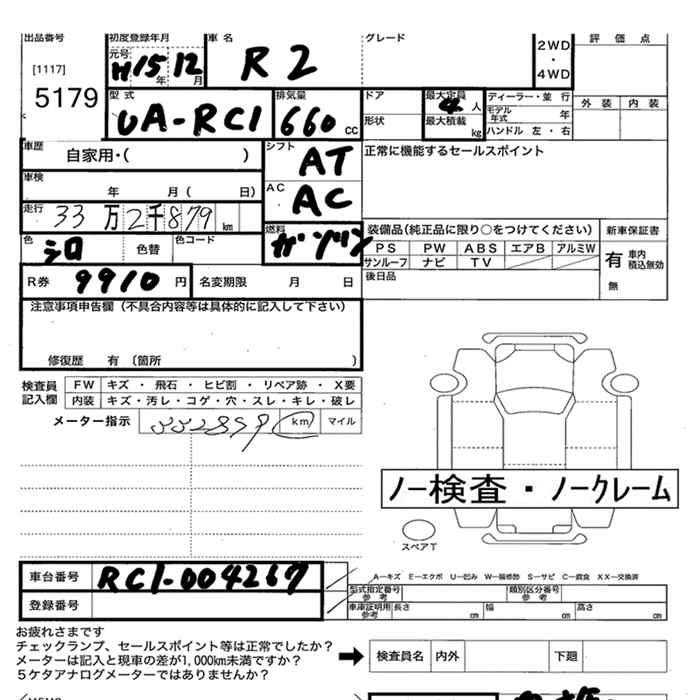 出品番号 初度登録年月 車名 グレード 評価点
元号 H15年 12月 R2 2WD・4WD
[1117]
5179 型式 UA-RC1 排気量 660 cc ドア 最大定員 4人 ディーラー・並行 外装 内装
形状 最大積載 kg モデル年式 年
ハンドル 左・右
車歴 自家用・( ) シフト AT 正常に機能するセールスポイント
車検 年 月 ( 日) AC AC
走行 33万2千879 km 燃料 ガソリン 装備品(純正品に限り○をつけてください) 新車保証書
色 シロ 色替 色コード PS PW ABS エアB アルミW 有 車内積込無効
サンルーフ ナビ TV 無
R券 9910円 名変期限 月 日 後日品
注意事項申告欄(不具合内容等は具体的に記入して下さい)
修復歴 有(箇所 )
検査員記入欄 FW キズ・飛石・ヒビ割・リペア跡・X要
内装 キズ・汚レ・コゲ・穴・スレ・キレ・破レ
メーター指示 km マイル
ノー検査・ノークレーム
スペアT
車台番号 RC1-004267 A－キズ E－エクボ U－凹み W－補修跡 S－サビ C－腐食 XX－交換済
型式指定番号 参考 類別区分番号 参考
登録番号 車庫証明用 参考 長さ cm 幅 cm 高さ cm
お疲れさまです
チェックランプ、セールスポイント等は正常でしたか?
メーターは記入と現車の差が1,000km未満ですか? 検査員名 内外 下廻
5ケタアナログメーターではありませんか?